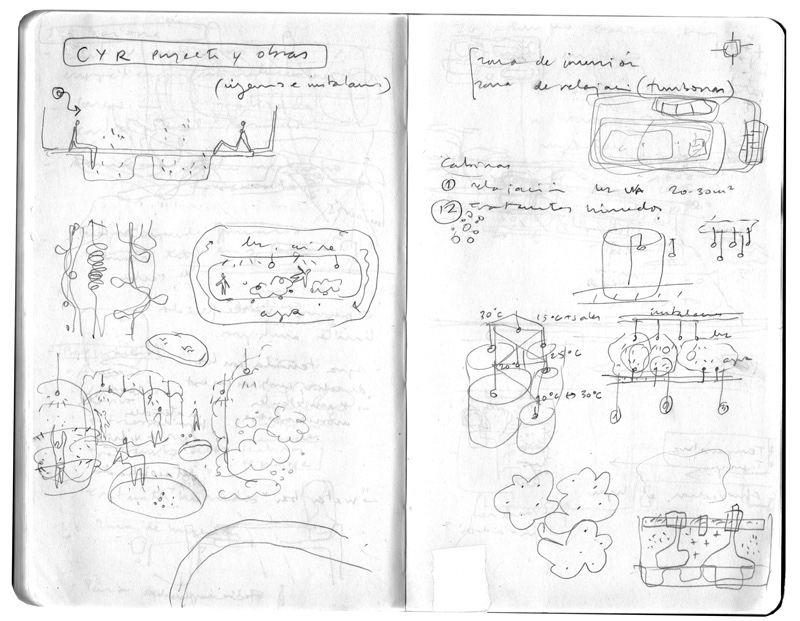 CYR proyectos y obras
(ingenieros e instaladores)
luz, aire
agua
zona de inmersión
zona de relajación (tumbonas)
Cabinas
① relajación luz UVA 20-30m²
⑫ tratamientos húmedos
30°C 15°C + sales
25°C
20°C
10°C ↔ 30°C
instalaciones
luz
agua
① ② ③